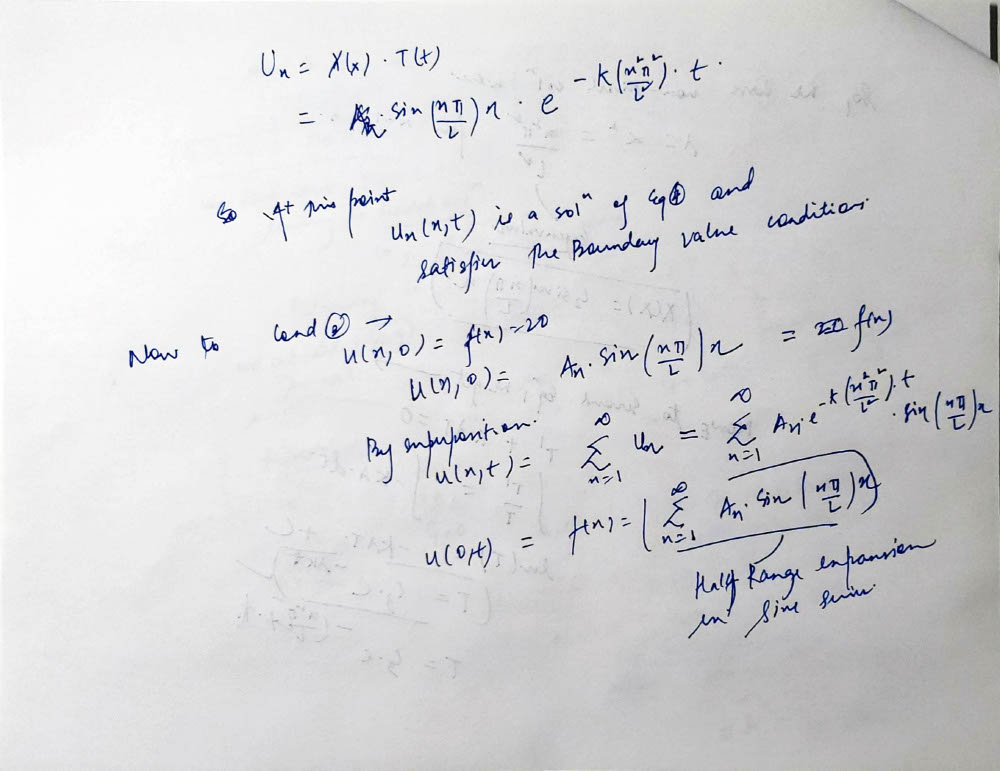 Un = X(x) · T(t)
= An · sin (nπ/L) x · e^{-k(n²π²/L²) · t} ·
So At this point
Un(x,t) is a solⁿ of eq① and
satisfies the Boundary value conditions
Now to cond ② →
u(x,0) = f(x) = 20
u(x,0) = An · sin (nπ/L) x = f(x)
By superposition.
u(x,t) = ∑_{n=1}^{∞} Un = ∑_{n=1}^{∞} An · e^{-k(n²π²/L²) · t} · sin (nπ/L) x
u(0,t) = f(x) = ∑_{n=1}^{∞} An · sin (nπ/L) x
Half Range expansion
in Sine series.